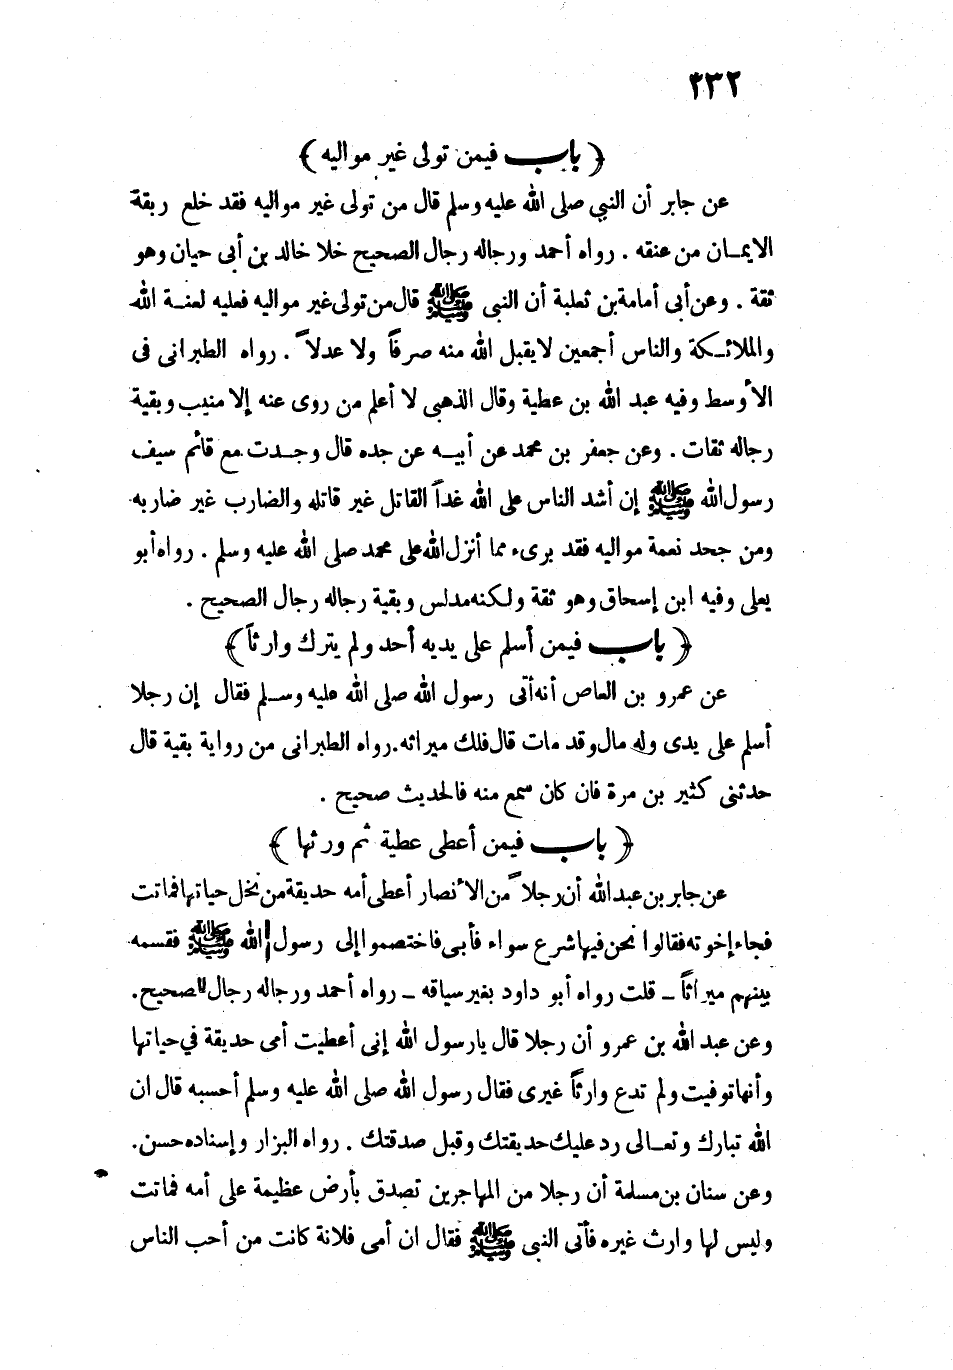 ٢٣٢
﴿ باب فيمن تولى غير مواليه ﴾
عن جابر أن النبي صلى الله عليه وسلم قال من تولى غير مواليه فقد خلع ربقة
الايمان من عنقه . رواه أحمد ورجاله رجال الصحيح خلا خالد بن أبى حيان وهو
ثقة . وعن أبى أمامة بن ثعلبة أن النبى ﷺ قال من تولى غير مواليه فعليه لعنة الله
والملائكة والناس أجمعين لا يقبل الله منه صرفاً ولا عدلاً . رواه الطبرانى فى
الأوسط وفيه عبد الله بن عطية وقال الذهبى لا أعلم من روى عنه إلا منيب وبقية
رجاله ثقات . وعن جعفر بن محمد عن أبيه عن جده قال وجدت مع قائم سيف
رسول الله ﷺ إن أشد الناس على الله غداً القاتل غير قاتله والضارب غير ضاربه
ومن جحد نعمة مواليه فقد برىء مما أنزل الله على محمد صلى الله عليه وسلم . رواه أبو
يعلى وفيه ابن إسحاق وهو ثقة ولكنه مدلس وبقية رجاله رجال الصحيح .
﴿ باب فيمن أسلم على يديه أحد ولم يترك وارثاً ﴾
عن عمرو بن العاص أنه أتى رسول الله صلى الله عليه وسلم فقال إن رجلا
أسلم على يدى وله مال وقد مات قال فلك ميراثه . رواه الطبرانى من رواية بقية قال
حدثنى كثير بن مرة فان كان سمع منه فالحديث صحيح .
﴿ باب فيمن أعطى عطية ثم ورثها ﴾
عن جابر بن عبد الله أن رجلاً من الأنصار أعطى أمه حديقة من نخل حياتها فماتت
فجاء إخوته فقالوا نحن فيها شرع سواء فأبى فاختصموا إلى رسول الله ﷺ فقسمه
بينهم ميراثاً ــ قلت رواه أبو داود بغير سياقه ــ رواه أحمد ورجاله رجال الصحيح .
وعن عبد الله بن عمرو أن رجلا قال يارسول الله إنى أعطيت أمى حديقة في حياتها
وأنها توفيت ولم تدع وارثاً غيرى فقال رسول الله صلى الله عليه وسلم أحسبه قال ان
الله تبارك وتعالى رد عليك حديقتك وقبل صدقتك . رواه البزار وإسناده حسن .
وعن سنان بن مسلمة أن رجلا من المهاجرين تصدق بأرض عظيمة على أمه فماتت
وليس لها وارث غيره فأتى النبى ﷺ فقال ان أمى فلانة كانت من أحب الناس